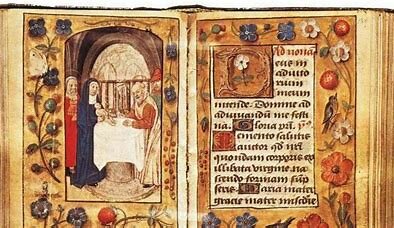 Ad nona
Deus in
adiuto
rium
meum
intende. Domine ad
adiuuandū me fes
tina. Gloria pri.
Memento salutis
autor qd nri
quondam corporis ex
illibata virgine na
scendo formam sup
seris. Maria mater
gracie mater miscdie